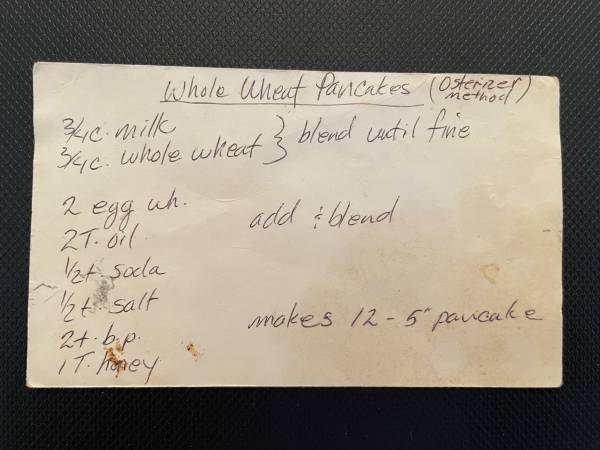 Whole Wheat Pancakes (Osterizer method)
3/4 c. milk
3/4 c. whole wheat } blend until fine
2 egg wh.
2 T. oil
1/2 t. soda
1/2 t. salt
2 t. b.p.
1 T. honey
add & blend
makes 12 - 5" pancake